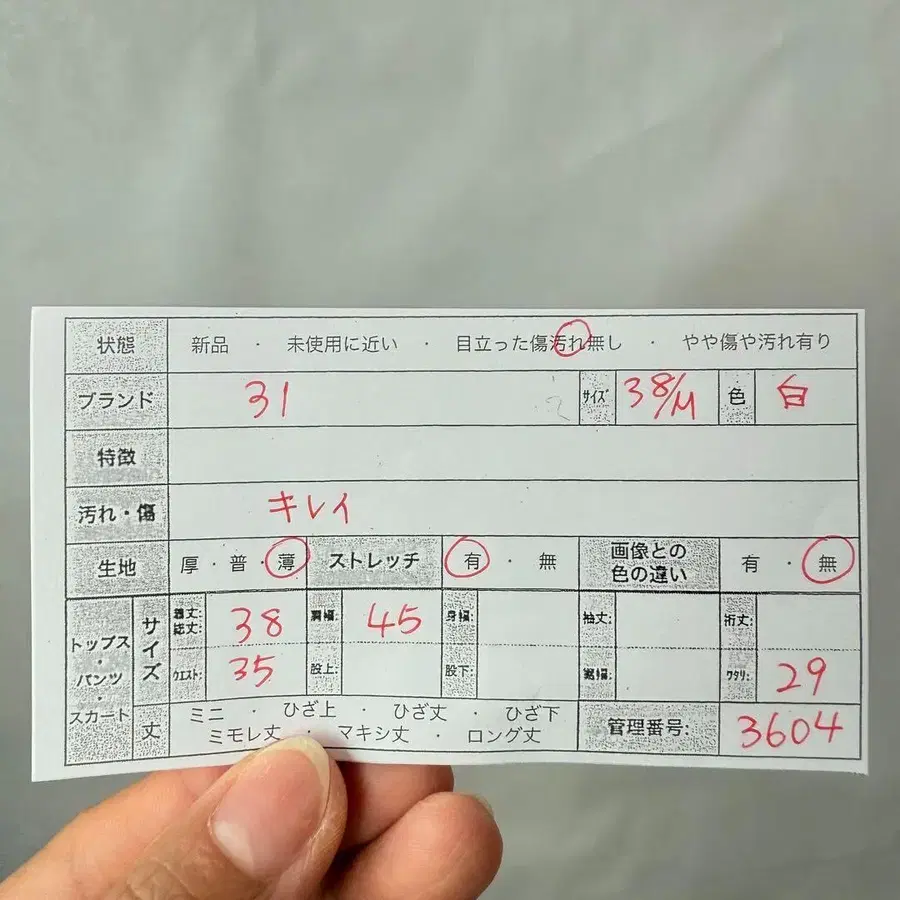 状態 新品 ・ 未使用に近い ・ 目立った傷汚れ無し ・ やや傷や汚れ有り
ブランド 31 サイズ 38/M 色 白
特徴
汚れ・傷 キレイ
生地 厚・普・薄 ストレッチ 有・無 画像との色の違い 有・無
トップス・パンツ・スカート サイズ 着丈:総丈: 38 肩幅: 45 身幅: 袖丈: 裄丈:
ウエスト: 35 股上: 股下: 裾幅: ワタリ: 29
丈 ミニ ・ ひざ上 ・ ひざ丈 ・ ひざ下
ミモレ丈 ・ マキシ丈 ・ ロング丈
管理番号: 3604